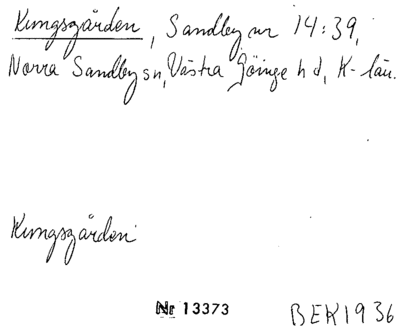 Kungsgården, Sandby nr 14:39,
Norra Sandby sn, Västra Göinge hd, K-län.
Kungsgården
Nr 13373
BEK1936